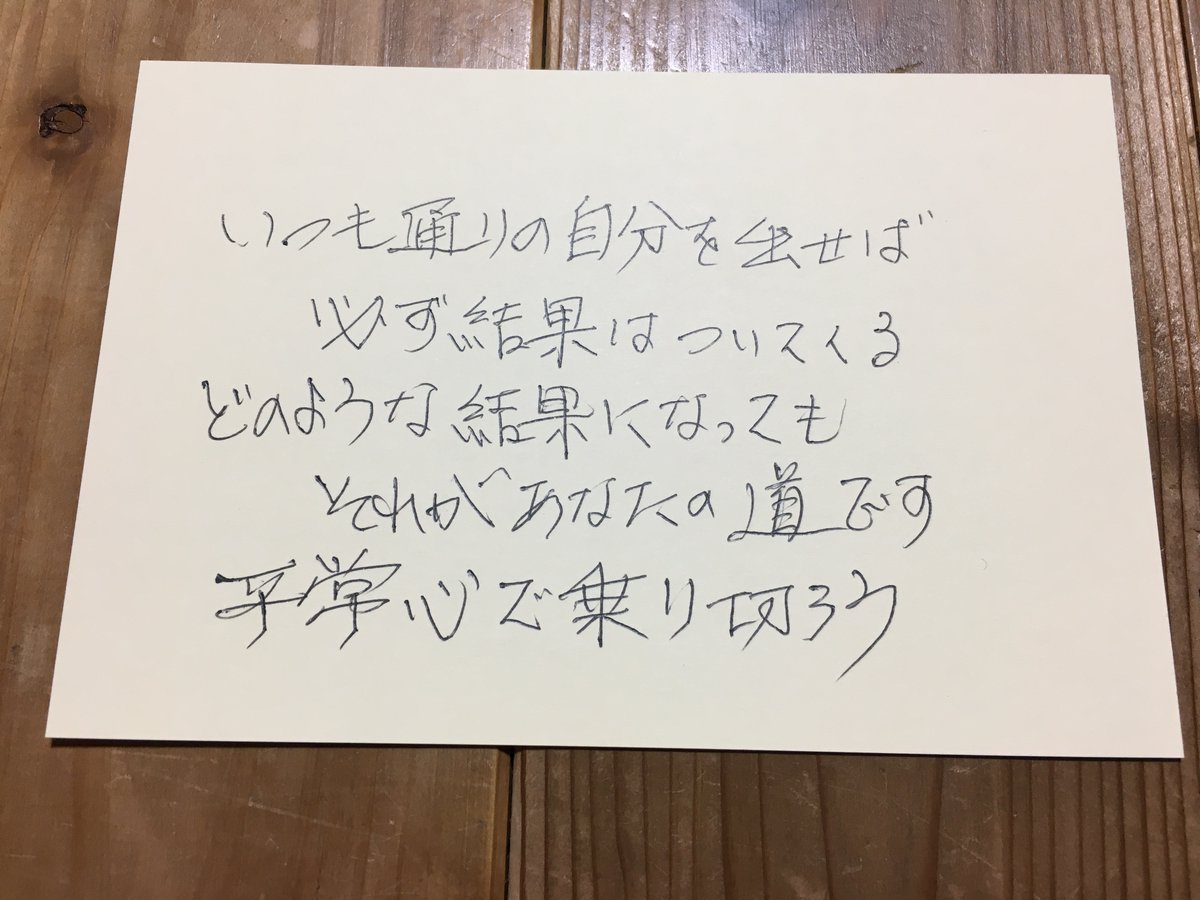 いつも通りの自分を出せば
必ず結果はついてくる
どのような結果になっても
それがあなたの道です
平常心で乗り切ろう